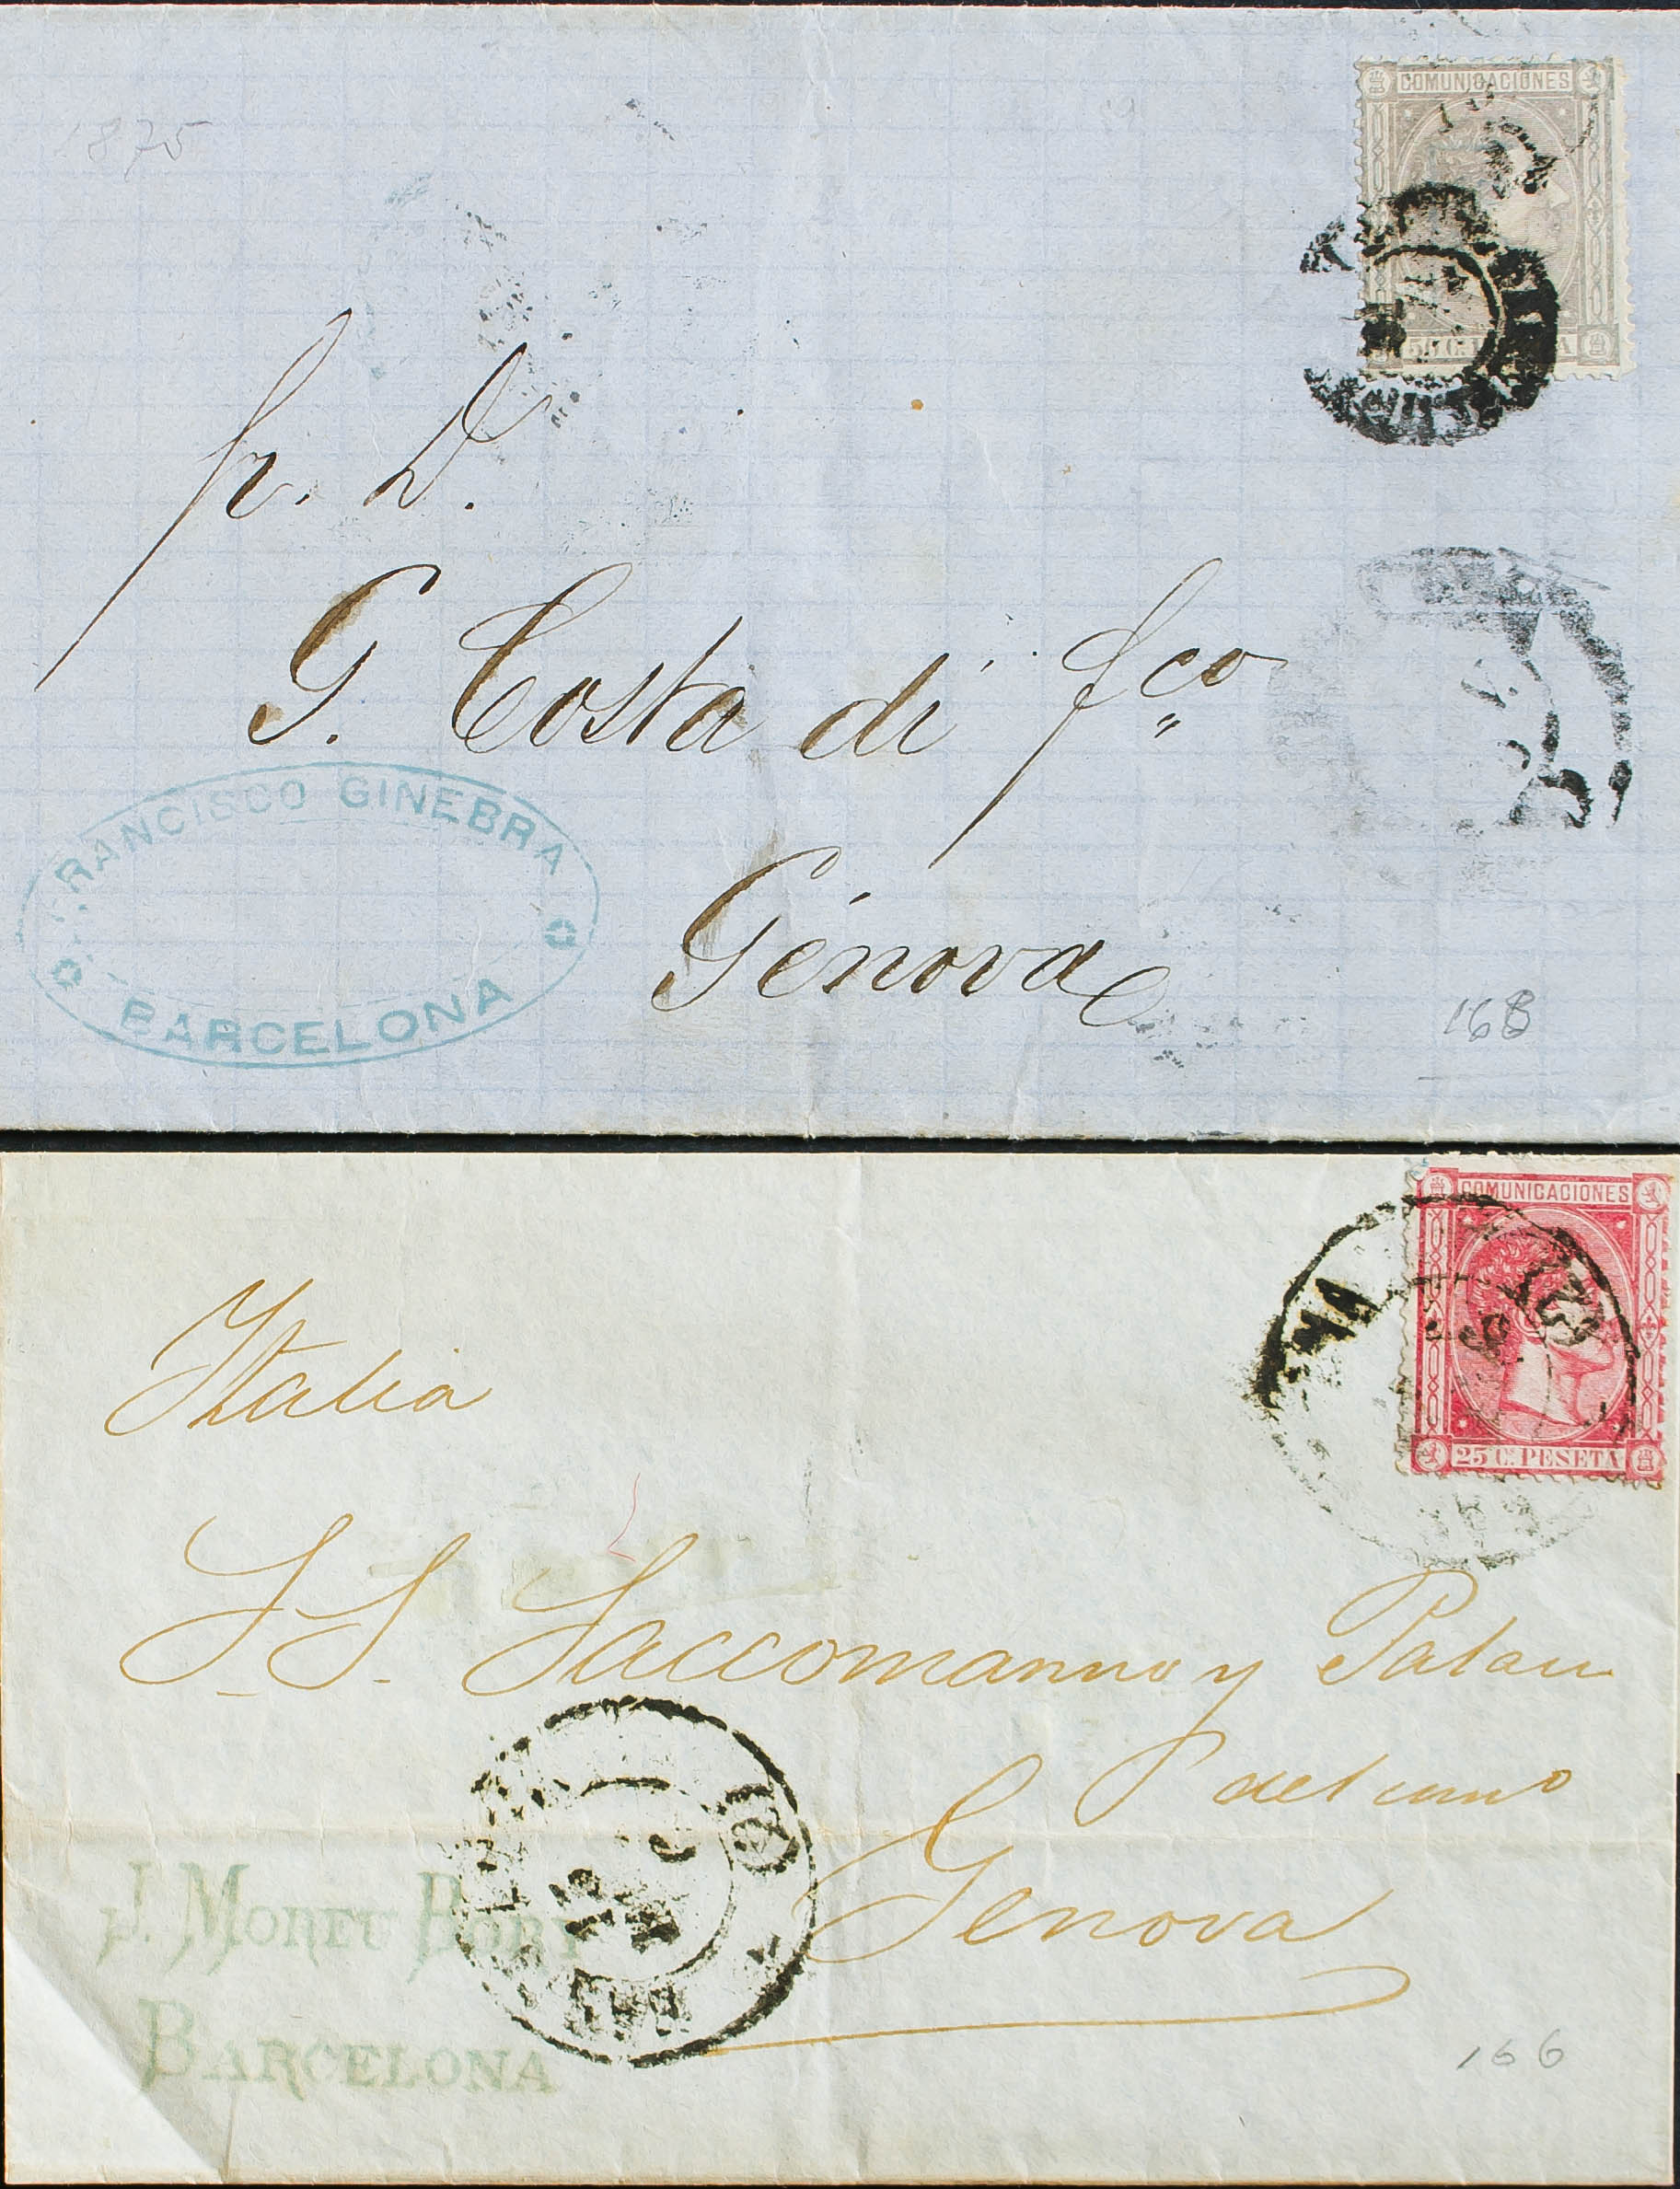 1875
COMUNICACIONES
50 C.
p. D.
G. Costa di Fco
Génova
FRANCISCO GINEBRA
BARCELONA
168
COMUNICACIONES
25 Cs. PESETA
Italia
S. S. Saccomanno y Patau
Genova
J. MORET BORI
BARCELONA
166